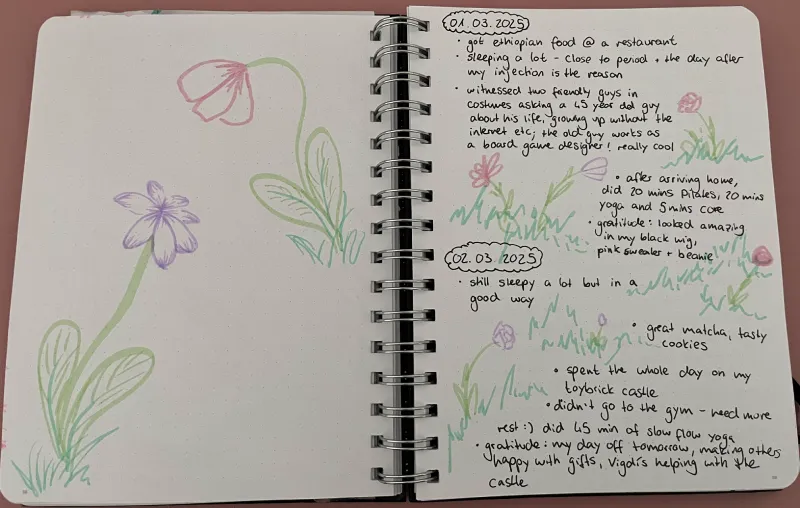 01.03.2025
· got ethiopian food @ a restaurant
· sleeping a lot - close to period + the day after
my injection is the reason
· witnessed two friendly guys in
costumes asking a 45 year old guy
about his life, growing up without the
internet etc; the old guy works as
a board game designer! really cool
· after arriving home,
did 20 mins Pilates, 20 mins
yoga and 5 mins core
· gratitude: looked amazing
in my black wig,
pink sweater + beanie
02.03.2025
· still sleepy a lot but in a
good way
· great matcha, tasty
cookies
· spent the whole day on my
toybrick castle
· didn't go to the gym - need more
rest :) did 45 min of slow flow yoga
· gratitude: my day off tomorrow, making others
happy with gifts, Vigdis helping with the
castle